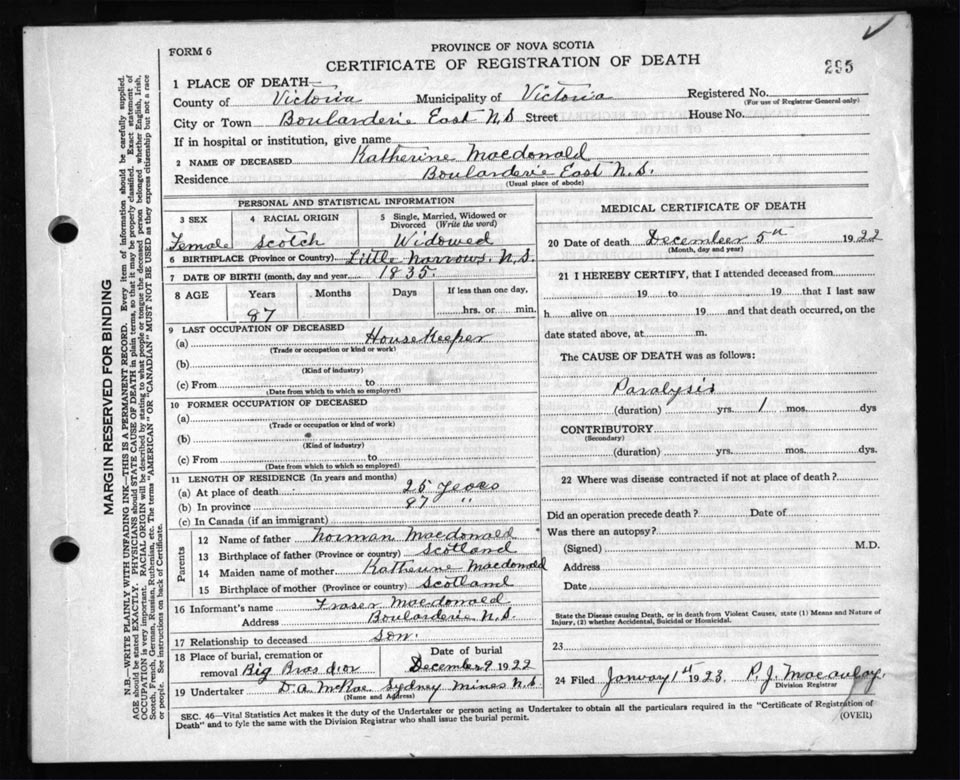 PROVINCE OF NOVA SCOTIA
FORM 6
CERTIFICATE OF REGISTRATION OF DEATH
295
1 PLACE OF DEATH—
County of Victoria Municipality of Victoria Registered No.
(For use of Registrar General only)
City or Town Boulanderie East N.S Street House No.
If in hospital or institution, give name
2 NAME OF DECEASED Katherine Macdonald
Residence Boularderie East N.S.
(Usual place of abode)
PERSONAL AND STATISTICAL INFORMATION
3 SEX 4 RACIAL ORIGIN 5 Single, Married, Widowed or Divorced (Write the word)
Female Scotch Widowed
6 BIRTHPLACE (Province or Country) Little Narrows N.S.
7 DATE OF BIRTH (month, day and year) 1835.
8 AGE Years Months Days If less than one day,
87 hrs. or min.
9 LAST OCCUPATION OF DECEASED
(a) House Keeper
(Trade or occupation or kind or work)
(b)
(Kind of industry)
(c) From to
(Date from which to which so employed)
10 FORMER OCCUPATION OF DECEASED
(a)
(Trade or occupation or kind of work)
(b)
(Kind of industry)
(c) From to
(Date from which to which so employed)
11 LENGTH OF RESIDENCE (In years and months)
(a) At place of death : 25 Years
(b) In province 87 "
(c) In Canada (if an immigrant)
Parents
12 Name of father Norman Macdonald
13 Birthplace of father (Province or country) Scotland
14 Maiden name of mother Katherine Macdonald
15 Birthplace of mother (Province or country) Scotland
16 Informant's name Fraser Macdonald
Address Boularderie N.S.
17 Relationship to deceased Son.
18 Place of burial, cremation or removal Big Bras dior Date of burial December 9 1922
19 Undertaker D.A. McRae Sydney Mines N.S.
(Name and Address)
MEDICAL CERTIFICATE OF DEATH
20 Date of death December 5th 1922
(Month, day and year)
21 I HEREBY CERTIFY, that I attended deceased from
19 to 19 that I last saw
h alive on 19 and that death occurred, on the
date stated above, at m.
The CAUSE OF DEATH was as follows:
Paralysis
(duration) yrs. 1 mos. dys
CONTRIBUTORY
(Secondary)
(duration) yrs. mos. dys.
22 Where was disease contracted if not at place of death?
Did an operation precede death? Date of
Was there an autopsy?
(Signed) M.D.
Address
Date
State the Disease causing Death, or in death from Violent Causes, state (1) Means and Nature of
Injury, (2) whether Accidental, Suicidal or Homicidal.
23
24 Filed January 1st 1923. P.J. Macaulay
Division Registrar
SEC. 46—Vital Statistics Act makes it the duty of the Undertaker or person acting as Undertaker to obtain all the particulars required in the "Certificate of Registration of
Death" and to fyle the same with the Division Registrar who shall issue the burial permit.
(OVER)
MARGIN RESERVED FOR BINDING
N.B.—WRITE PLAINLY WITH UNFADING INK—THIS IS A PERMANENT RECORD. Every item of information should be carefully supplied.
AGE should be stated EXACTLY. PHYSICIANS should STATE CAUSE OF DEATH in plain terms, so that it may be properly classified. Exact statement of
OCCUPATION is very important. RACIAL ORIGIN will be described by stating to what people or tongue the deceased person belonged whether English, Irish,
Scotch, French, German, Russian, Ruthenian, etc. The terms "AMERICAN" OR "CANADIAN" MUST NOT BE USED as they express citizenship but not a race
or people. See instructions on back of Certificate.